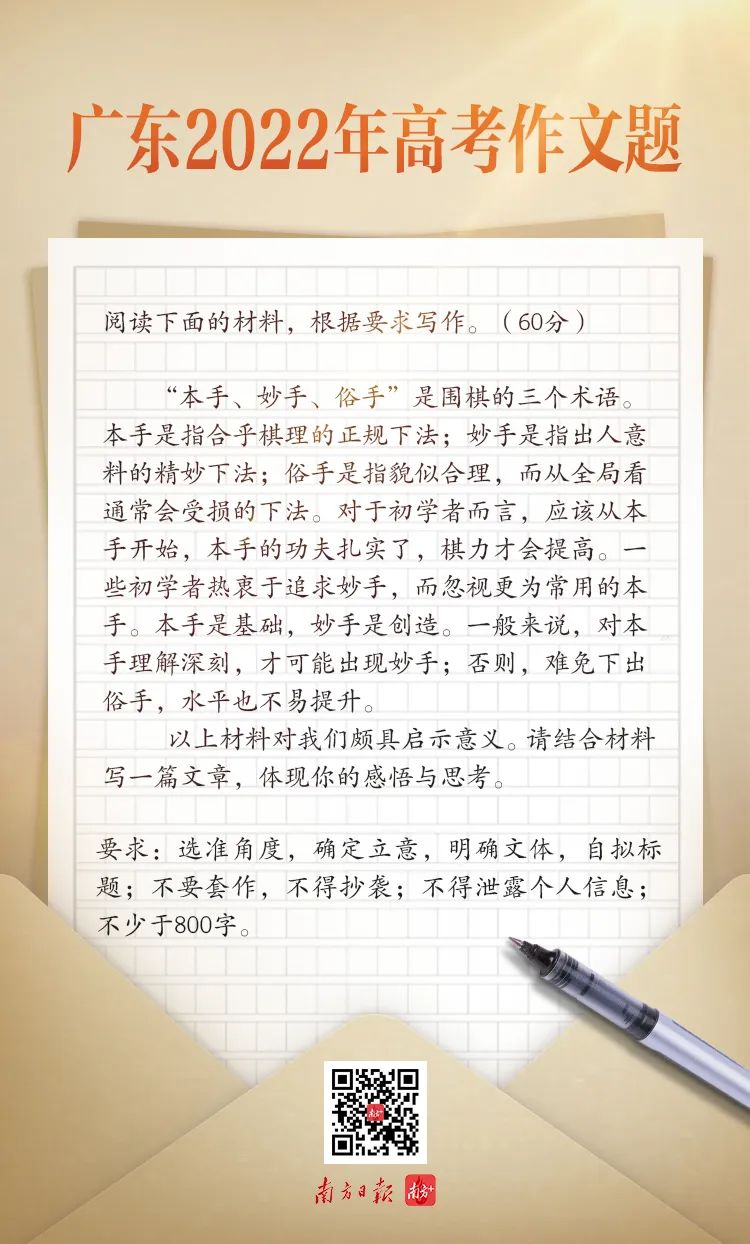 广东2022年高考作文题
阅读下面的材料，根据要求写作。（60分）
“本手、妙手、俗手”是围棋的三个术语。
本手是指合乎棋理的正规下法；妙手是指出人意
料的精妙下法；俗手是指貌似合理，而从全局看
通常会受损的下法。对于初学者而言，应该从本
手开始，本手的功夫扎实了，棋力才会提高。一
些初学者热衷于追求妙手，而忽视更为常用的本
手。本手是基础，妙手是创造。一般来说，对本
手理解深刻，才可能出现妙手；否则，难免下出
俗手，水平也不易提升。
以上材料对我们颇具启示意义。请结合材料
写一篇文章，体现你的感悟与思考。
要求：选准角度，确定立意，明确文体，自拟标
题；不要套作，不得抄袭；不得泄露个人信息；
不少于800字。
南方+
南方日报 南方+